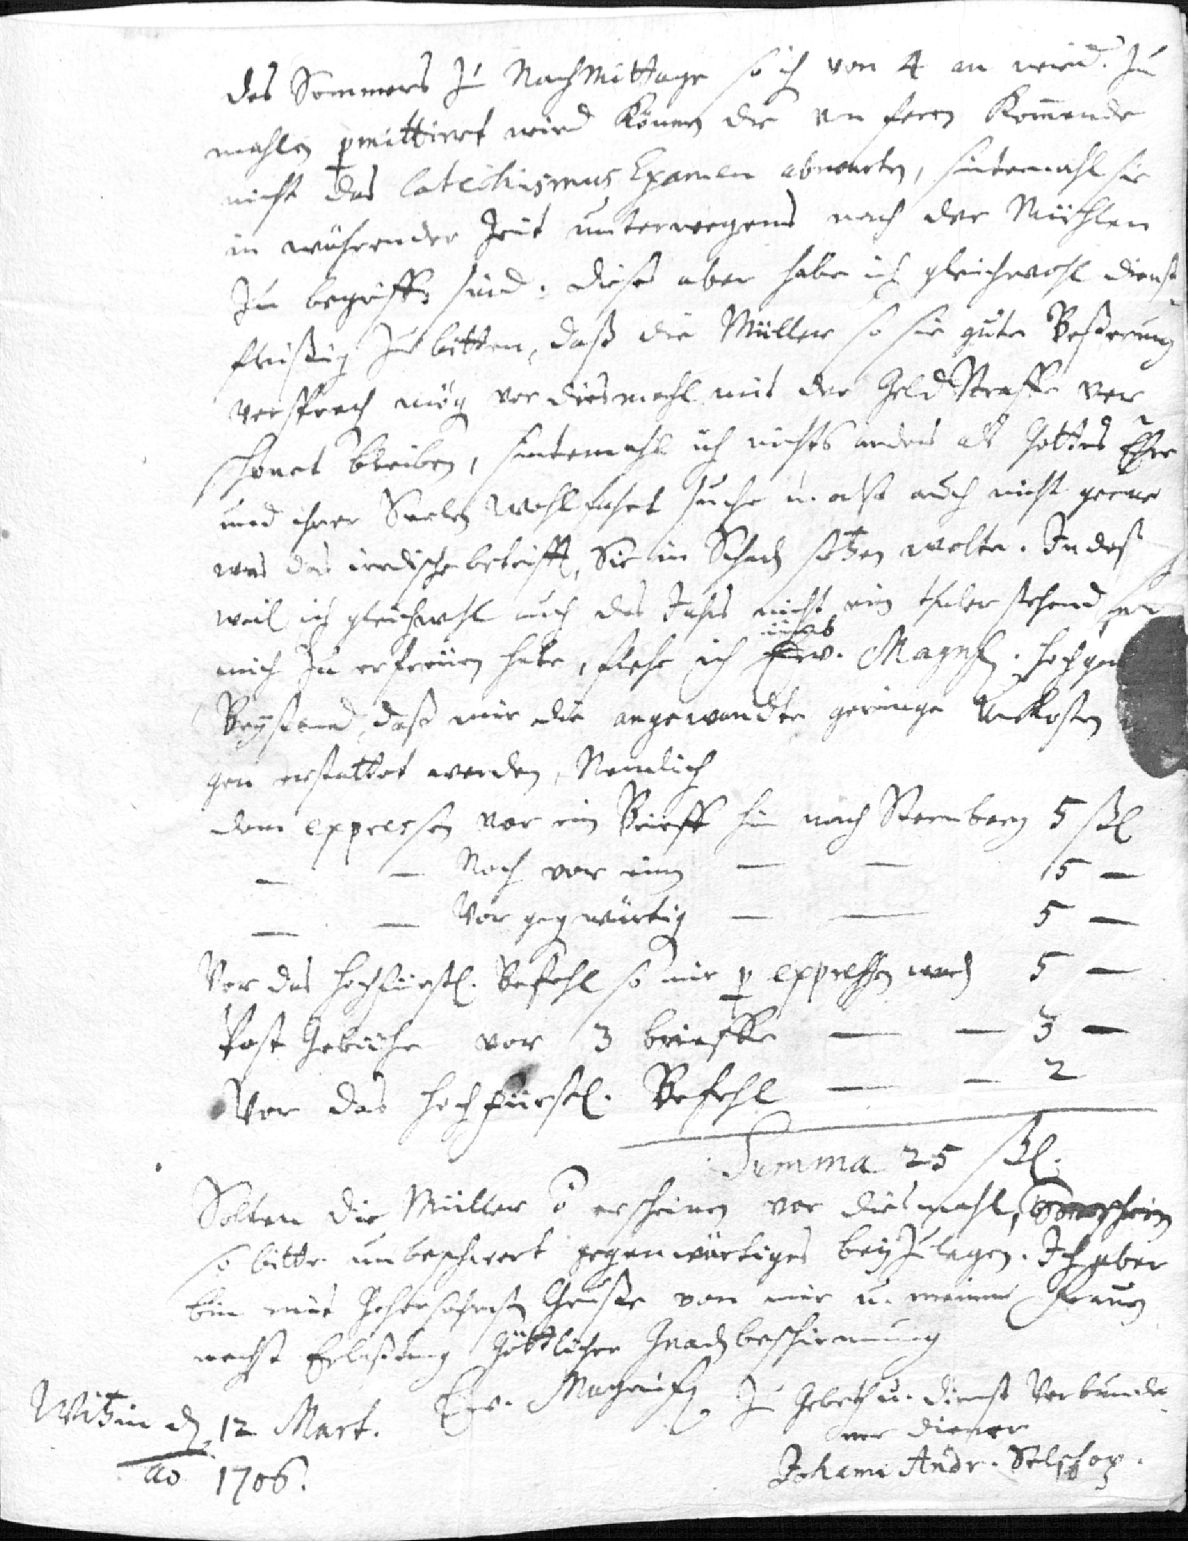 des Sommers zu NachMittage so ich von 4 an wird. zu
mahlen permittirt wird können die von fern Kommende
nicht das Catechismus Examen abwarten, sintemahl sie
in währender Zeit unterwegens nach der Mühlen
zu begriffen sind. Dieses aber habe ich gleichwohl dienst-
fleißig zu bitten, daß die Müller so sie gute Beßerung
versprech mög vor diesmahl mit der Geld Straffe ver
schonet bleiben, sintemahl ich nichts anders als Gottes Ehre
und ihrer Seelen Wohlfahrt suche u. also auch nicht gerne
was das irdische betrifft, Sie in Schad setzen wolte. In deß
weil ich gleichwohl auch des Jahrs nicht ein thaler stehend
mich zu erfreuen habe, flehe ich Ew. Magnf. hochgen
Beystand, daß mir die angewandte geringe Unkosten
gen erstattet werden, Nemlich
dem expressen vor ein Brieff hin nach Sternberg 5 ßl
— — Noch vor ein — — 5 —
— — Vor gegwärtig — — 5 —
Vor das hochfürstl. Befehl so mir p expressen ward 5 —
Post Gebühr vor 3 brieffe — — 3 —
Vor das hochfürstl. Befehl — — 2
Summa 25 ßl.
Solten die Müller erscheinen vor diesmahl,
so bitte unbeschwert gegenwärtiges beyzulegen. Ich aber
bin mit gehorsahmsten Gruße von mir u. meiner Frauen
nechst Erlaßung Göttlicher Gnadbeschirmung
Ew. Magnif. zu Gebeth u. dienst Verbunde
ner Diener
Witzin d 12 Mart.
ao 1706.
Johann Andr. Selschop.